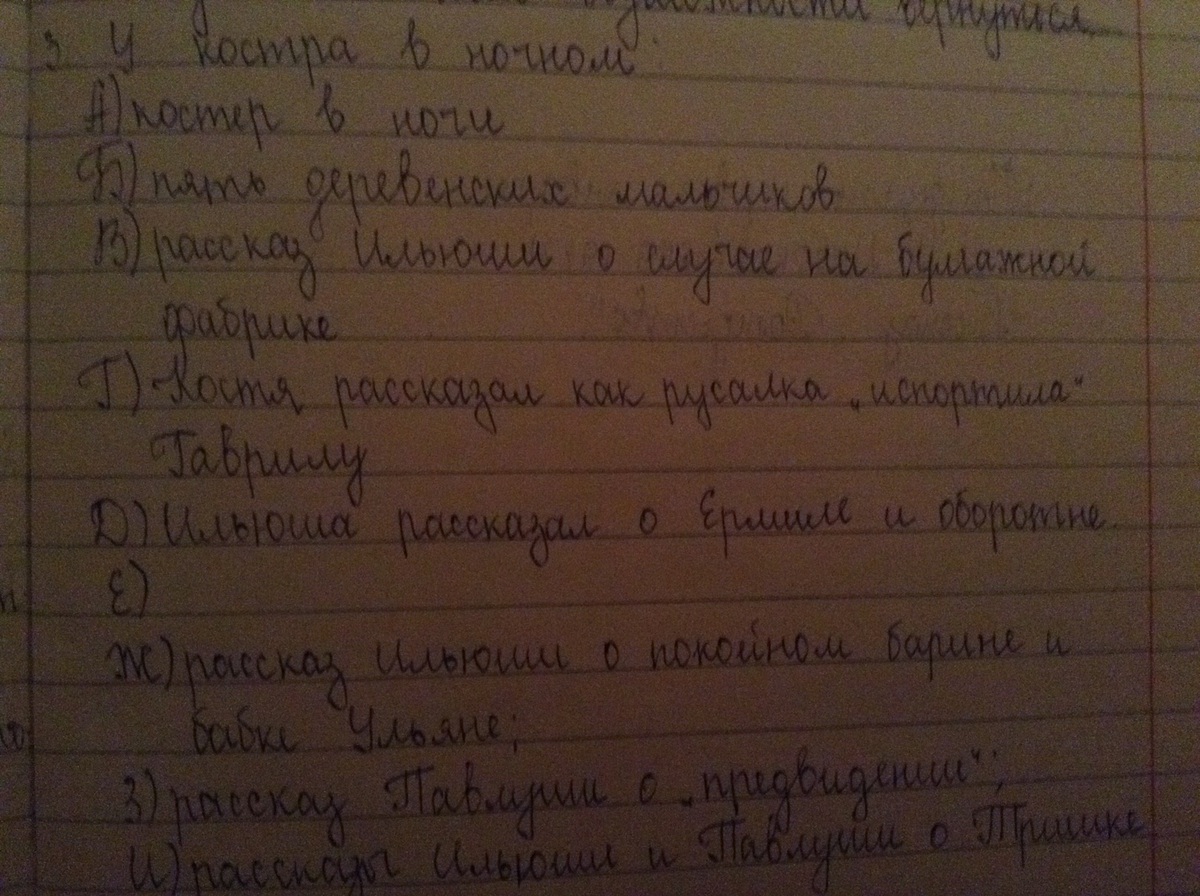 вернуться
3. У костра в ночном:
А) костер в ночи
Б) пять деревенских мальчиков
В) рассказ Ильюши о случае на бумажной
фабрике
Г) Костя рассказал как русалка „испортила"
Гаврилу
Д) Ильюша рассказал о Ермиле и оборотне.
Е)
Ж) рассказ Ильюши о покойном барине и
бабке Ульяне;
З) рассказ Павлуши о „предвидении";
И) рассказы Ильюши и Павлуши о Тришке